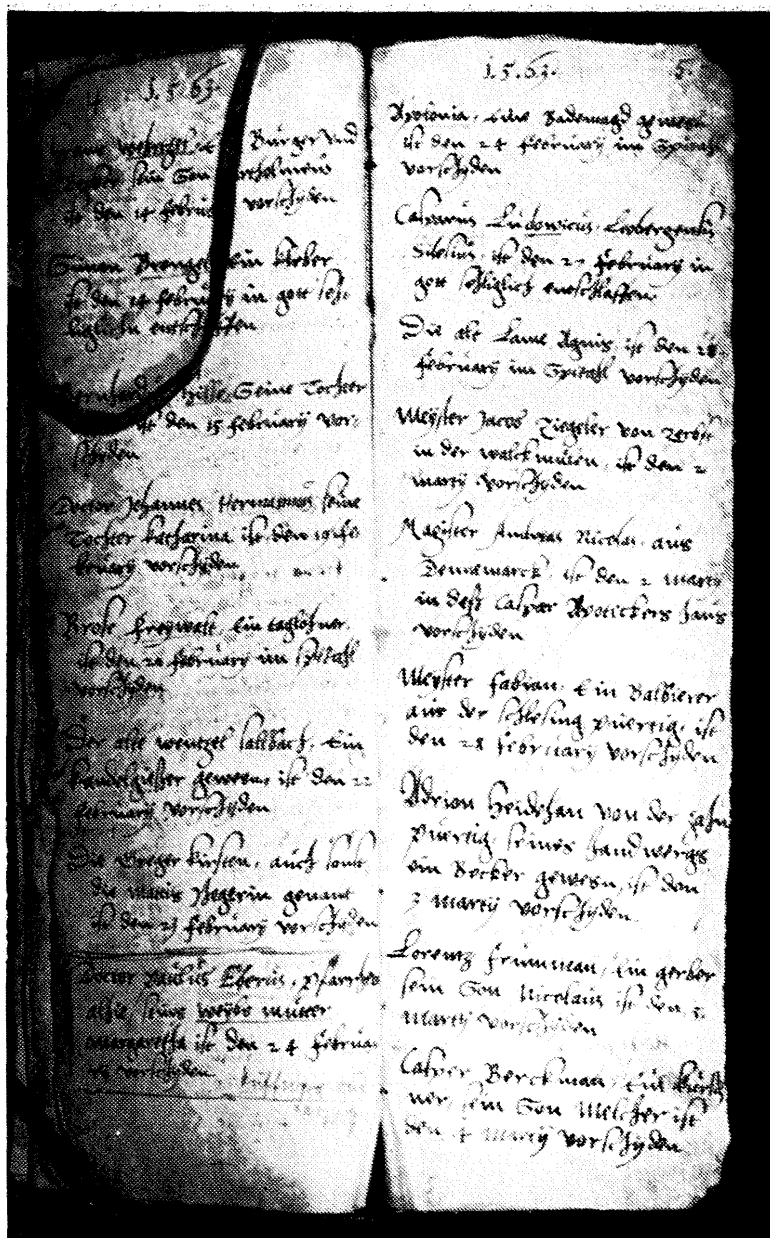 4 1.5.63.
Burger und
sein Son
ist den 14 februarij vorschyden
Simon Brengel Ein kleber
ist den 14 februarij in gott seh
liglich entschlaffen
Bernhard Hille Seine Tochter
ist den 15 februarij vor-
schyden
Doctor Johannes Hermannus seine
Tochter katharina ist den 19 fe
bruarij vorschyden
Brose freywalt, Ein taglohner,
ist den 20 februarij im spitahl
vorschyden
Der alte wentzel kallbach, Ein
kandelgiesser gewesen, ist den 22
februarij vorschyden
Die Greger kirsten, auch sonst
die genant
ist den 23 februarij vorschyden
Doctor Paulus Eberus, pfarrhers
alhie, seines weybs mutter
Margaretha ist den 24 februa
rij vorschyden
1.5.63. 5.
Apolonia, Eine Bademagd gewesen
ist den 24 februarij im Spitahl
vorschyden
Casparus Ludowicus, Leobergensis
Silesius, ist den 27 februarij in
gott sehliglich entschlaffen
Die alt Lame Agnis, ist den 28
februarij im Spitahl vorschyden
Meyster Jacob Ziegeler von Zerbst
in der walckmulen, ist den 2
martij vorschyden
Magister Andreas Nicolai aus
Dennemarck, ist den 2 martij
in dess Caspar Apoteckers haus
vorschyden
Meyster fabian, Ein Balbierer
aus der schlesing puertig, ist
den 28 februarij vorschyden
Adrion Heidehan von der
puertig, seines handwergs
ein Becker gewesn, ist den
3 martij vorschyden
Lorentz frimman, Ein gerber
sein Son Nicolaus ist den 3
Martij vorschyden
Casper Berckman, Ein kursch
ner, sein Son Melcher ist
den 4 martij vorschyden